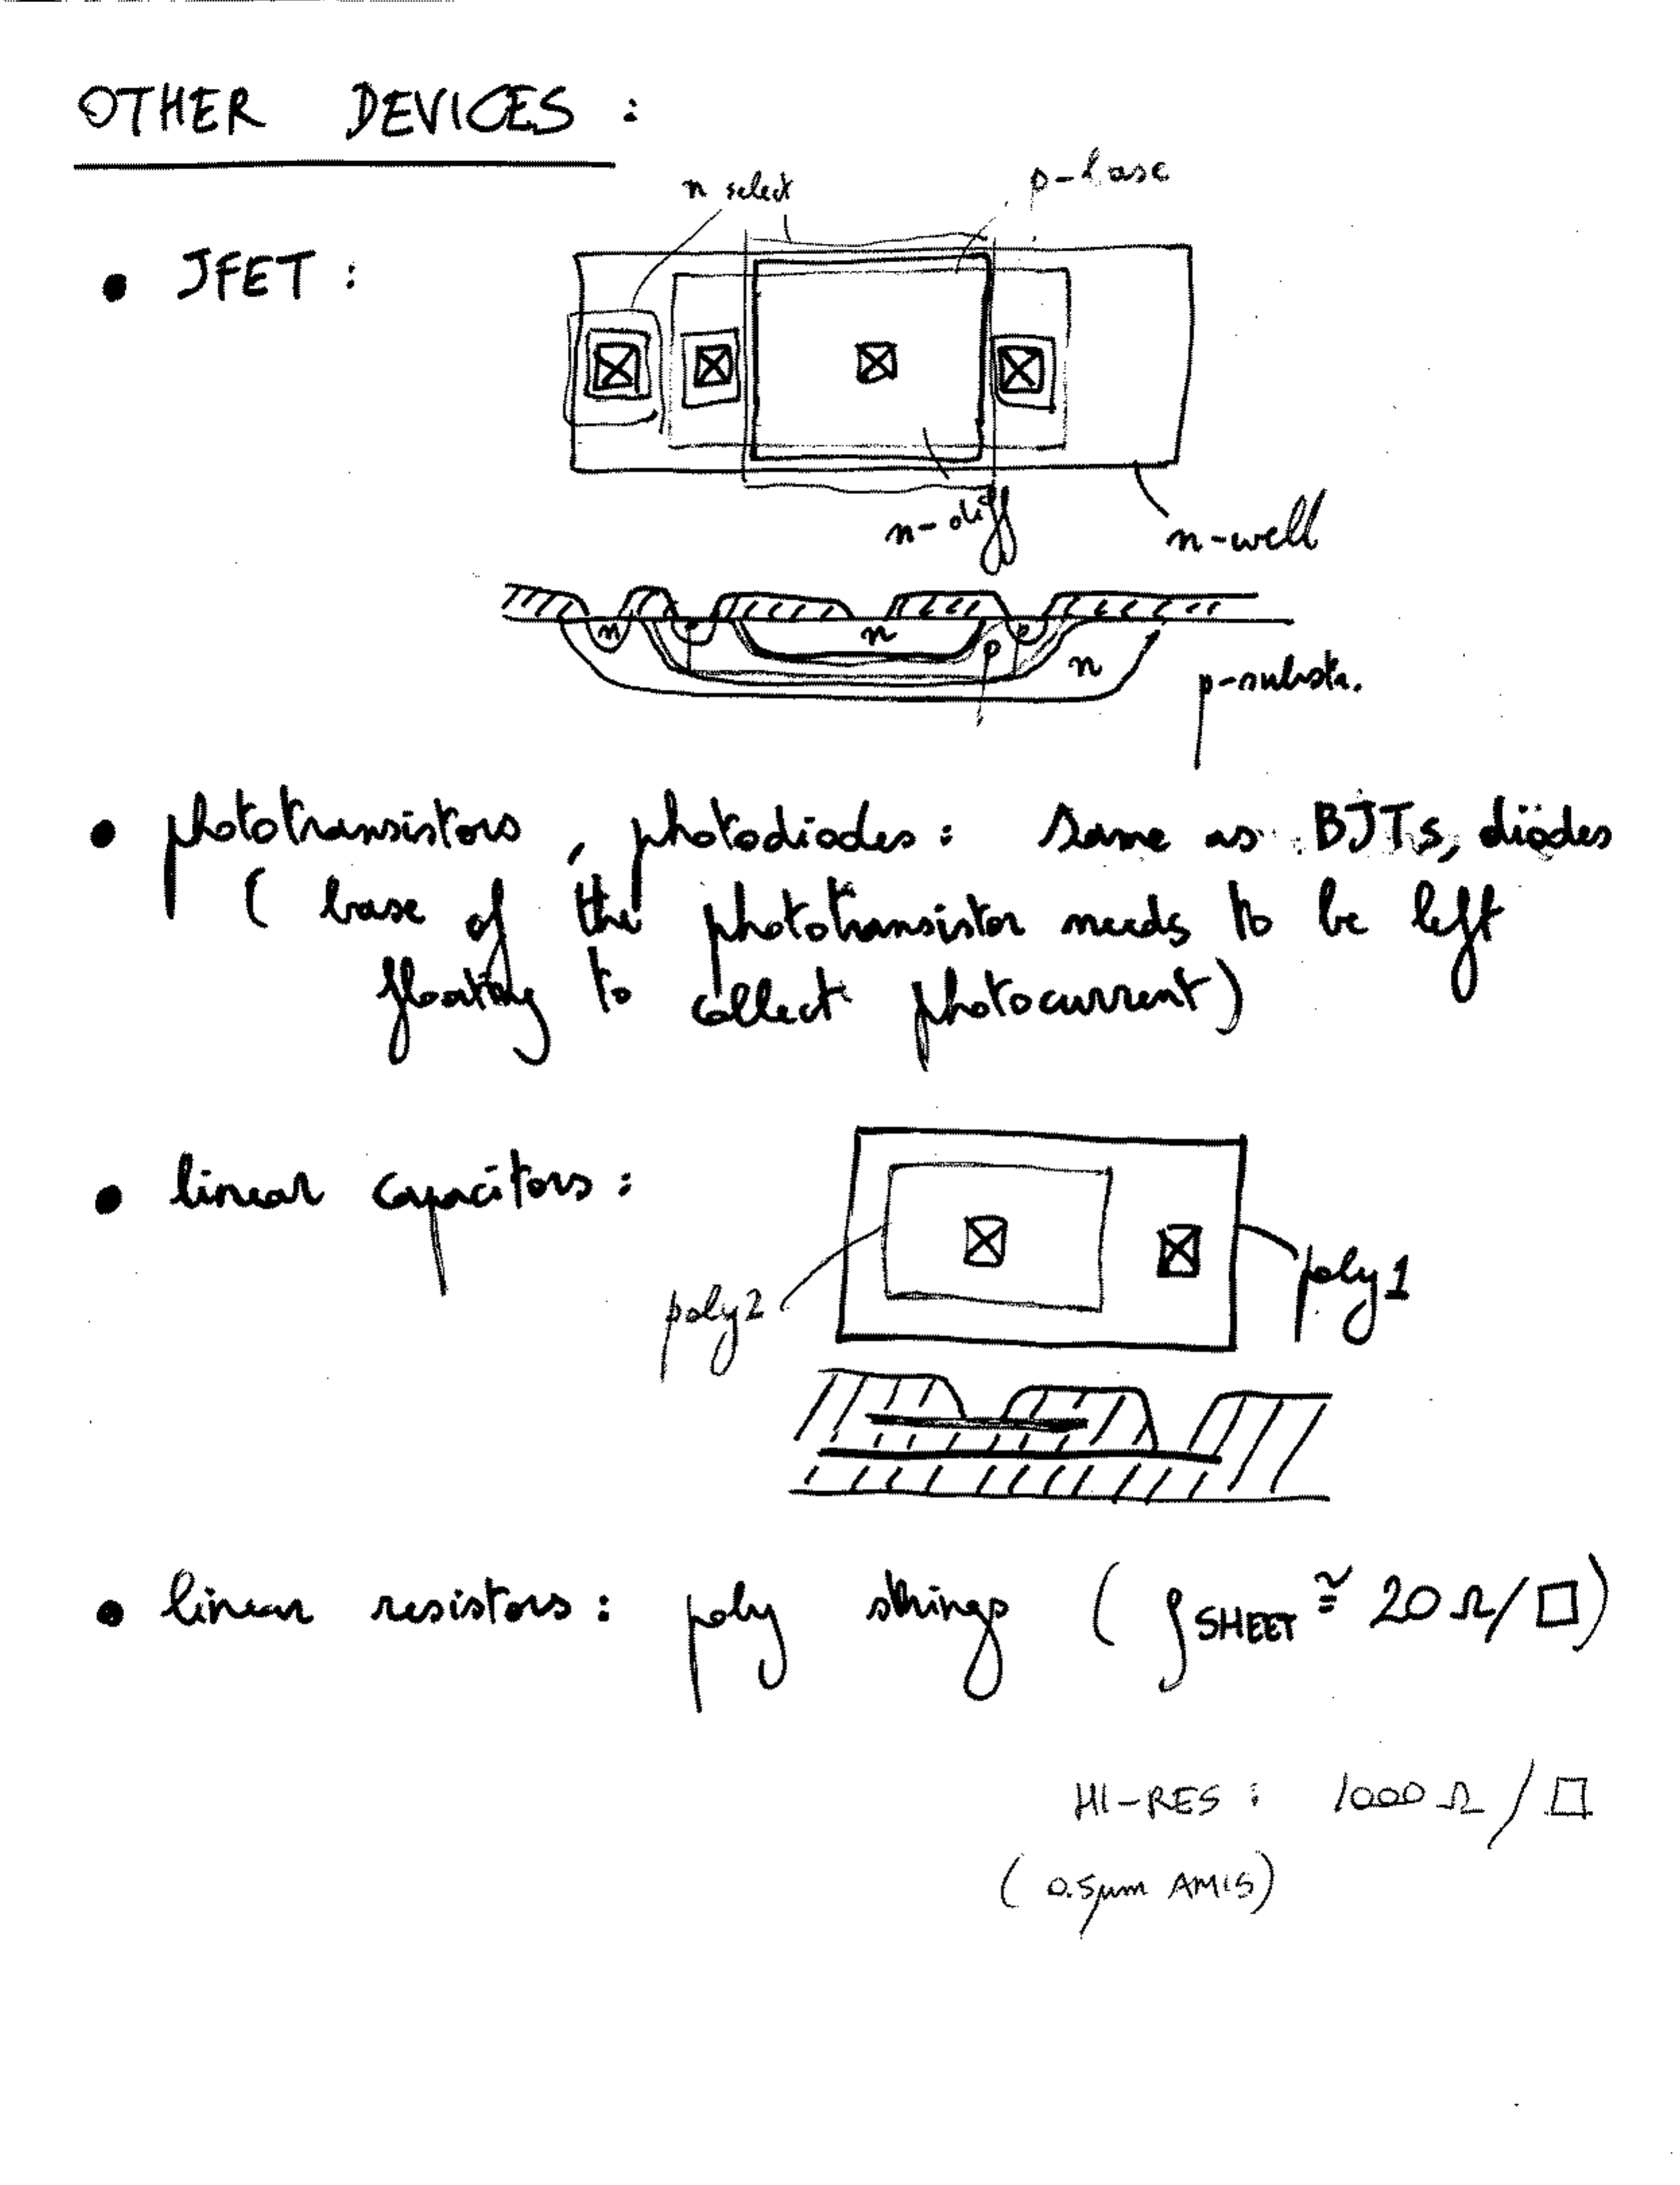 OTHER DEVICES :
n select
p-base
• JFET :
n-diff
n-well
n p n p p n
p-substr.
• phototransistors, photodiodes : same as BJTs, diodes
( base of the phototransistor needs to be left
floating to collect photocurrent)
• linear capacitors :
poly2
poly1
• linear resistors : poly strings ( ρSHEET ≅ 20 Ω/□)
HI-RES : 1000 Ω/□
( 0.5μm AMIS)